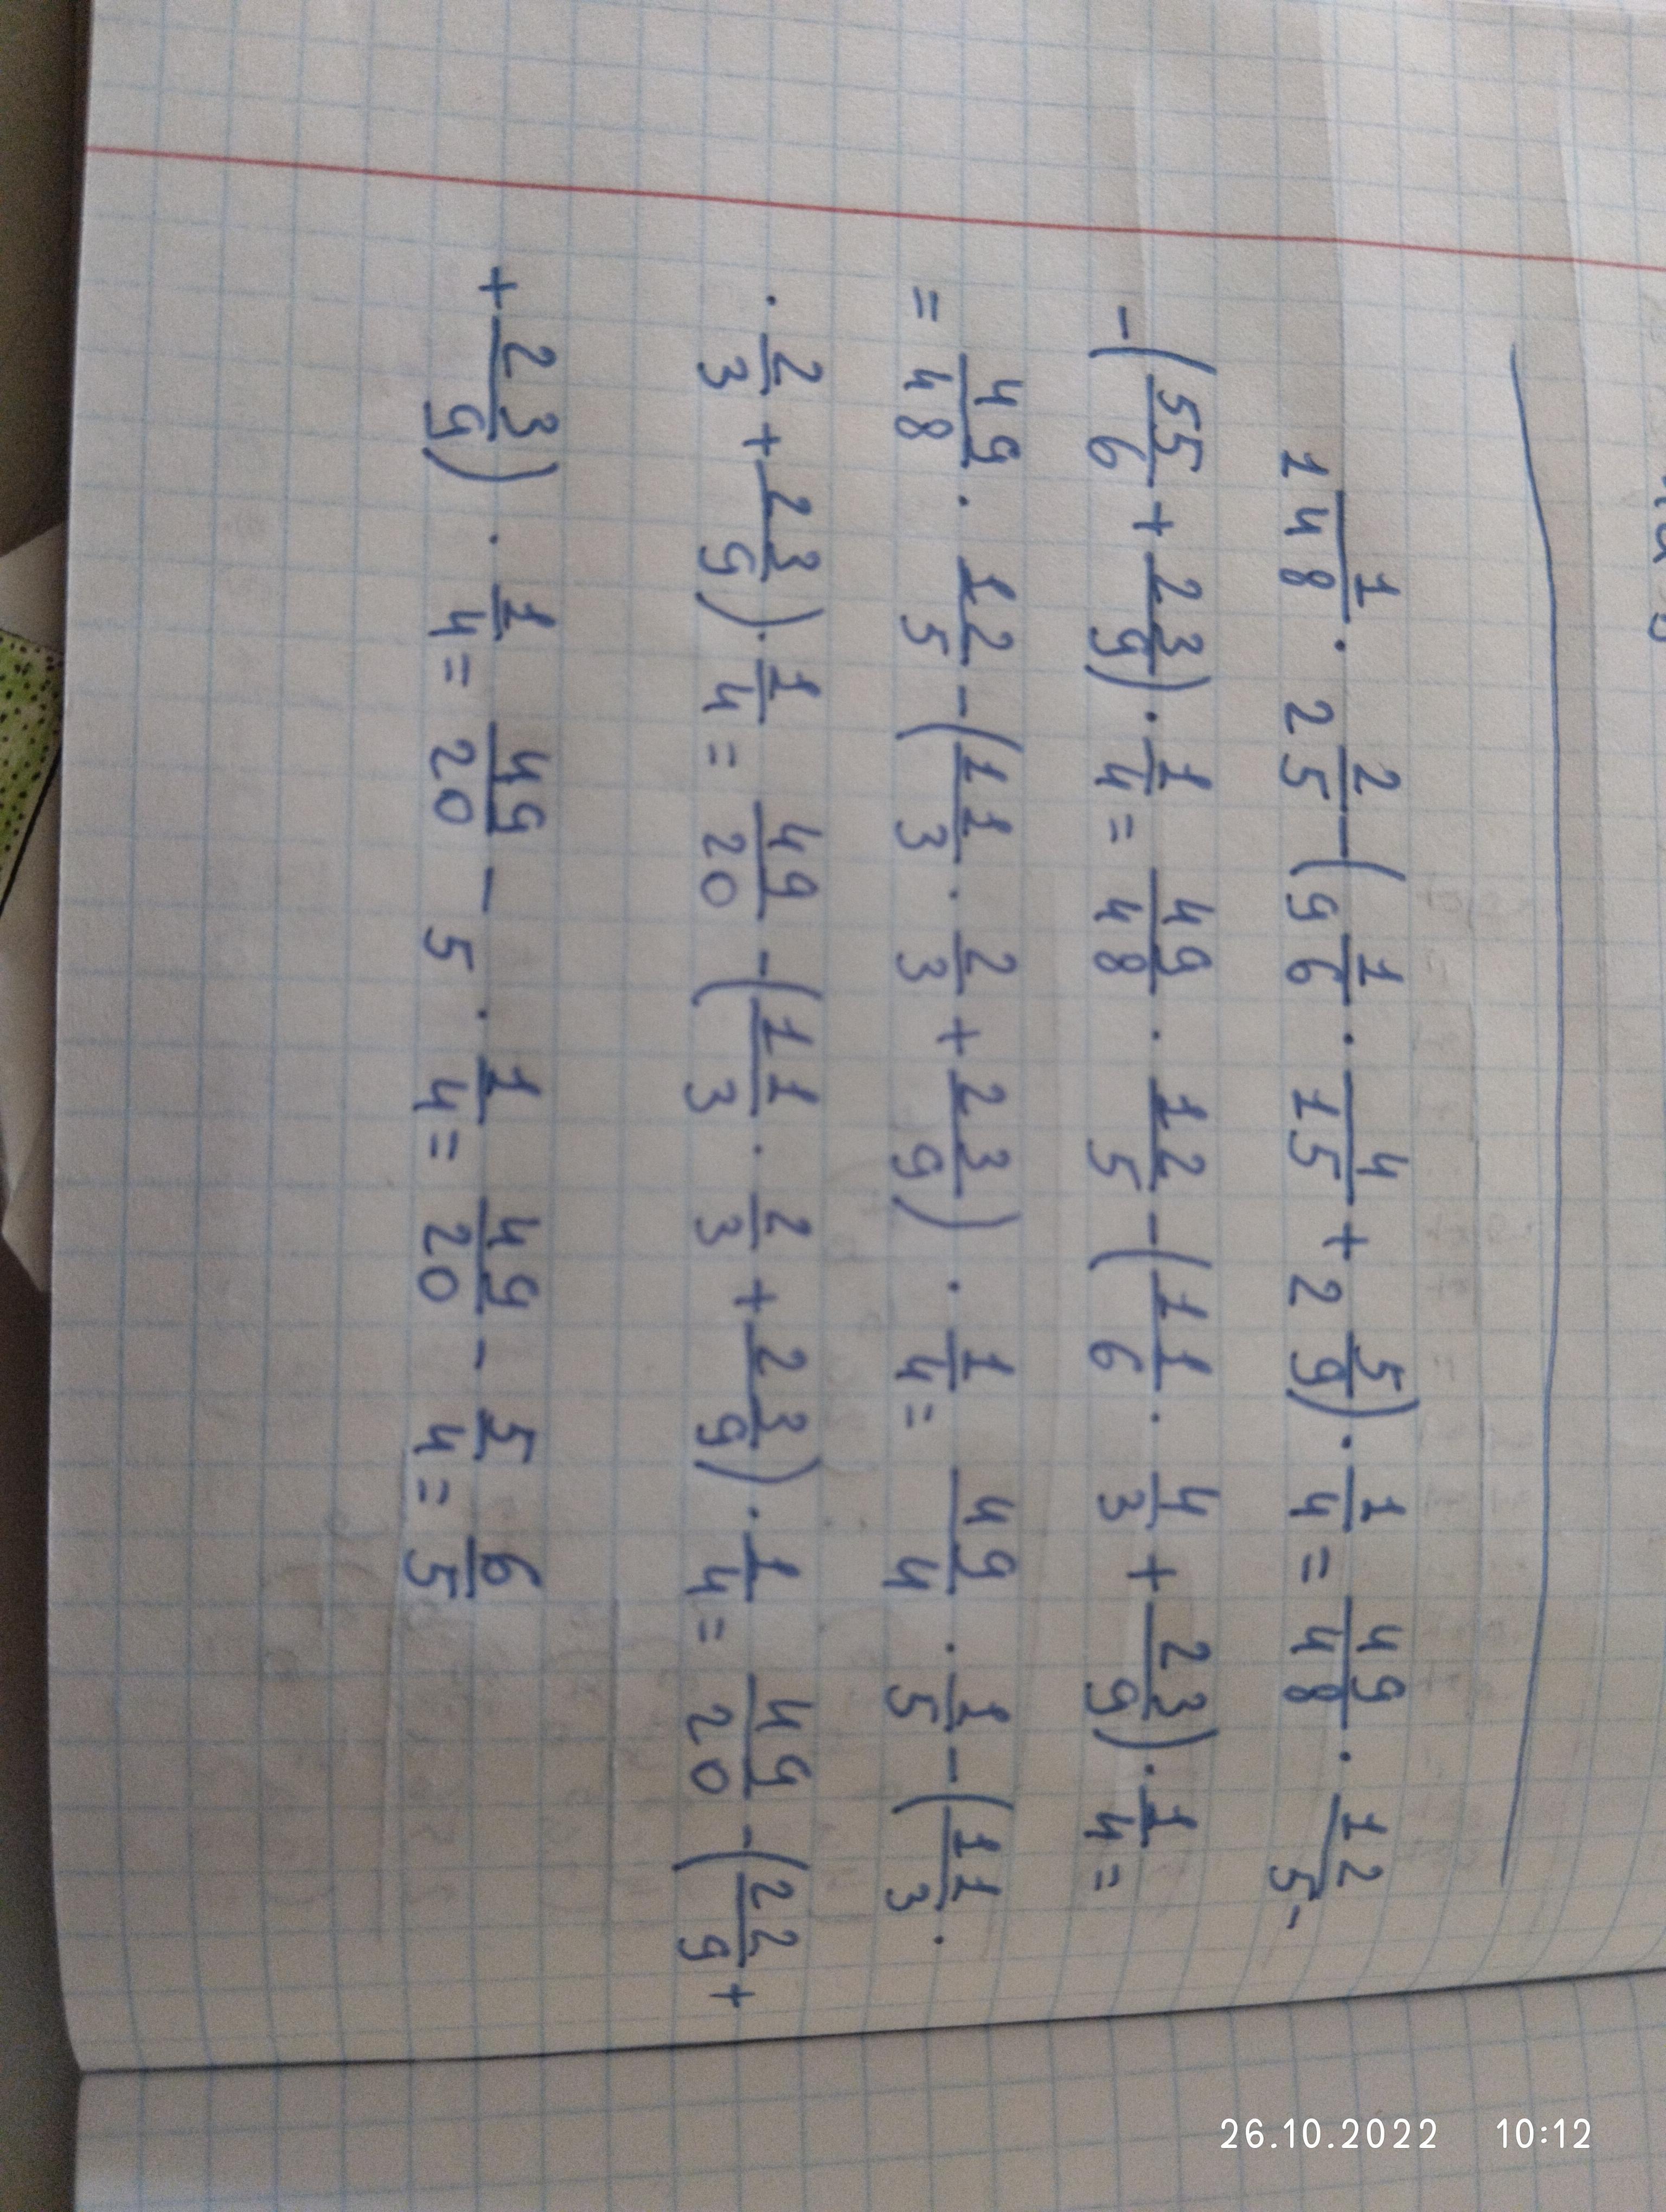 1 1/48 · 2 2/5 - (9 1/6 · 4/15 + 2 5/9) · 1/4 = 49/48 · 12/5 -
- (55/6 + 23/9) · 1/4 = 49/48 · 12/5 - (11/6 · 4/3 + 23/9) · 1/4 =
= 49/48 · 12/5 - (11/3 · 2/3 + 23/9) · 1/4 = 49/4 · 1/5 - (11/3 ·
· 2/3 + 23/9) · 1/4 = 49/20 - (11/3 · 2/3 + 23/9) · 1/4 = 49/20 - (22/9 +
+ 23/9) · 1/4 = 49/20 - 5 · 1/4 = 49/20 - 5/4 = 6/5
26.10.2022 10:12